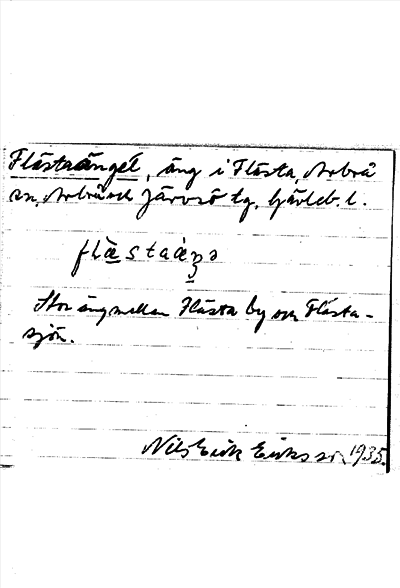 Flästaängel, äng i Flästa, Arbrå
sn, Arbrå och Järvsö tg, Gävleb. l.
flàstaàŋə
Stor äng mellan Flästa by och Flästa-
sjön.
Nils Erik Eriksson 1935.